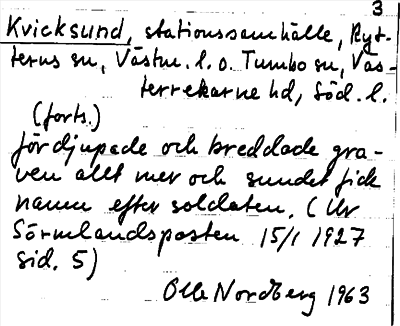 3
Kvicksund, stationssamhälle, Ryt-
terns sn, Västm. l. o. Tumbo sn, Väs-
terrekarne hd, Söd. l.
(forts.)
fördjupade och breddade gra-
ven allt mer och sundet fick
namn efter soldaten. (Ur
Sörmlandsposten 15/1 1927
sid. 5)
Olle Nordberg 1963